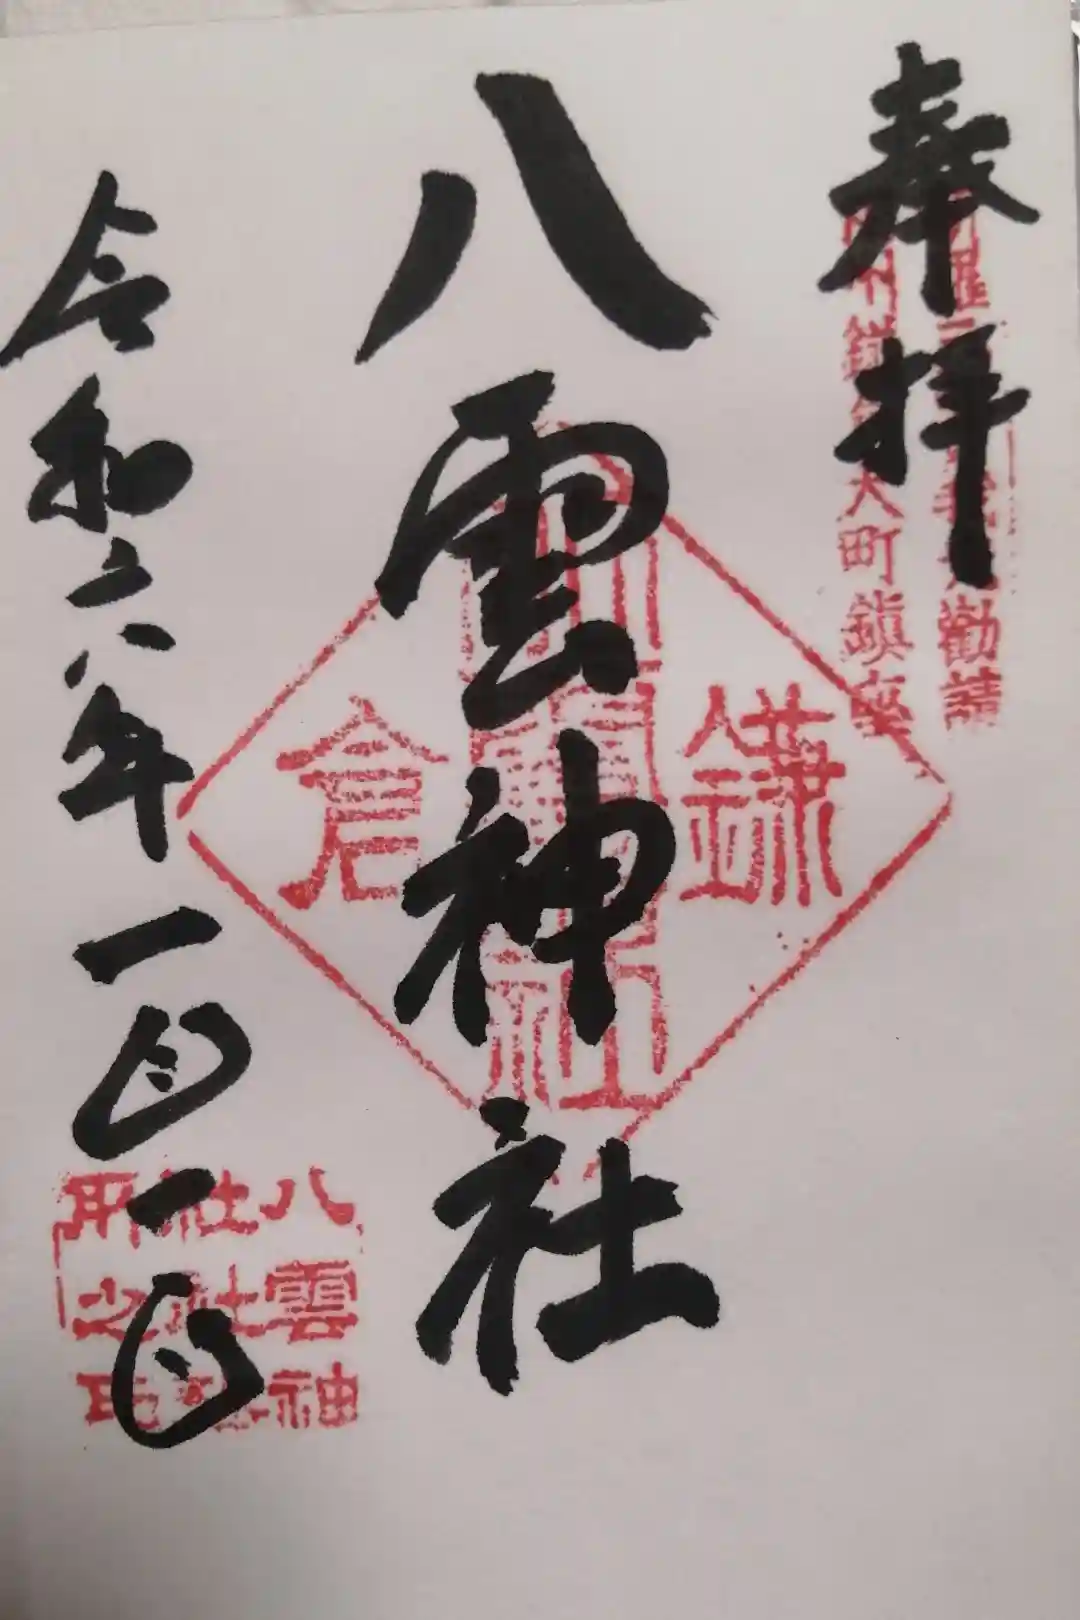 奉拝
勧請
大町鎮座
八雲神社
鎌倉
八雲神社
令和六年一月一日
八雲神
社社
之印